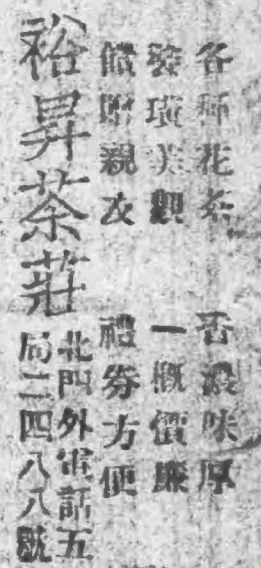 各種花茶 香濃味厚
裝璜美觀 一概價廉
餽贈親友 禮券方便
裕昇茶莊
北門外電話五
局二四八八號